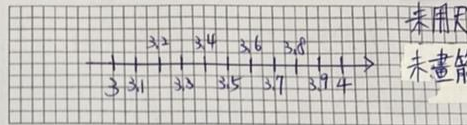 3.2 3.4 3.6 3.8
3 3.1 3.3 3.5 3.7 3.9 4
未用尺
未畫箭